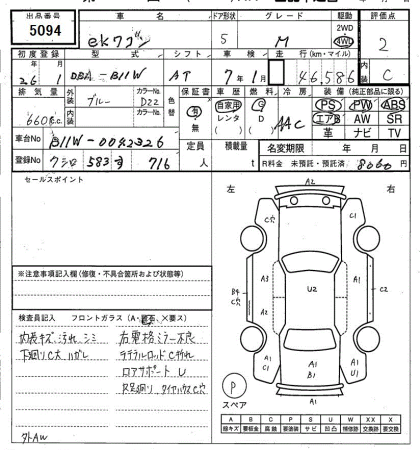 出品番号 車名 ドア形状 グレード 駆動 評価点
5094 ekワゴン 5 M 2WD 4WD 2
初度登録 型式 シフト 車検 走行(km・マイル) 内装
26年 1月 DBA-B11W AT 7年1月 46,586 C
排気量 外装 カラーNo. 色替 保証書 車歴 燃料 冷房 装備(純正部品に限る)
660c.c. ブルー D22 有・無 自家用 レンタ ( ) G D ( ) AAC PS PW ABS
内装 カラーNo. エアB AW SR
革 ナビ TV
車台No B11W-0042326 定員 積載量 名変期限 年 月 日
登録No 583 716 人 t R料金 未預託・預託済 8060円
セールスポイント
左 右
A2
C穴 C1
A3 A1
B4 C穴 U2 C2
A2
A1 C1 A1 A1 U1
B1
A1
P
スペア
※注意事項記入欄(修復・不具合箇所および状態等)
検査員記入 フロントガラス(A・飛石、×要ス)
内長キズ 汚れ シミ 右電格ミラー不良
下廻りC大 ハガレ ラテラルロッドC折れ
ロアサポート U
R足廻り タイヤハウスC穴
外AW
A B C P S U W XX X
線キズ 要板金 腐蝕 要塗装 サビ 凹凸 補修跡 交換跡 要交換